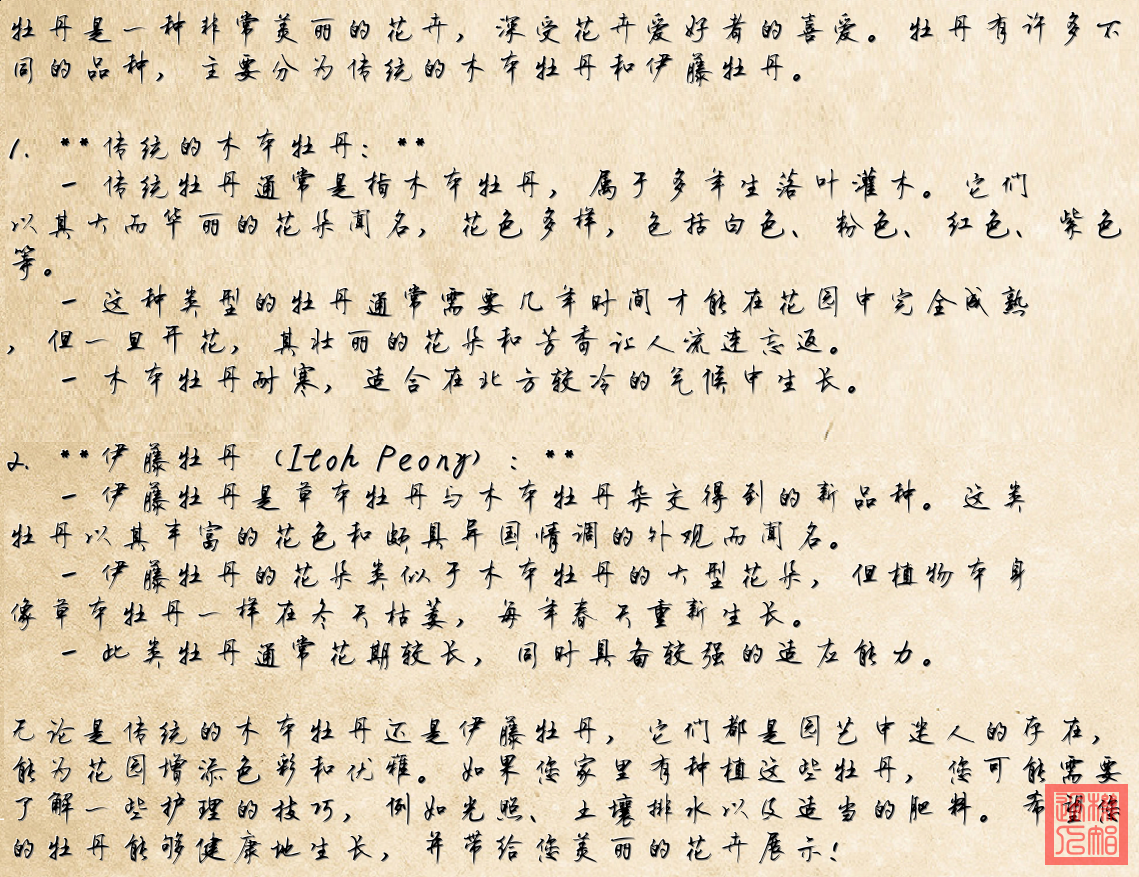 牡丹是一种非常美丽的花卉，深受花卉爱好者的喜爱。牡丹有许多不
同的品种，主要分为传统的木本牡丹和伊藤牡丹。
1. **传统的木本牡丹：**
- 传统牡丹通常是指木本牡丹，属于多年生落叶灌木。它们
以其大而华丽的花朵闻名，花色多样，包括白色、粉色、红色、紫色
等。
- 这种类型的牡丹通常需要几年时间才能在花园中完全成熟
，但一旦开花，其壮丽的花朵和芳香让人流连忘返。
- 木本牡丹耐寒，适合在北方较冷的气候中生长。
2. **伊藤牡丹（Itoh Peony）：**
- 伊藤牡丹是草本牡丹与木本牡丹杂交得到的新品种。这类
牡丹以其丰富的花色和颇具异国情调的外观而闻名。
- 伊藤牡丹的花朵类似于木本牡丹的大型花朵，但植物本身
像草本牡丹一样在冬天枯萎，每年春天重新生长。
- 此类牡丹通常花期较长，同时具备较强的适应能力。
无论是传统的木本牡丹还是伊藤牡丹，它们都是园艺中迷人的存在，
能为花园增添色彩和优雅。如果您家里有种植这些牡丹，您可能需要
了解一些护理的技巧，例如光照、土壤排水以及适当的肥料。希望您
的牡丹能够健康地生长，并带给您美丽的花卉展示！